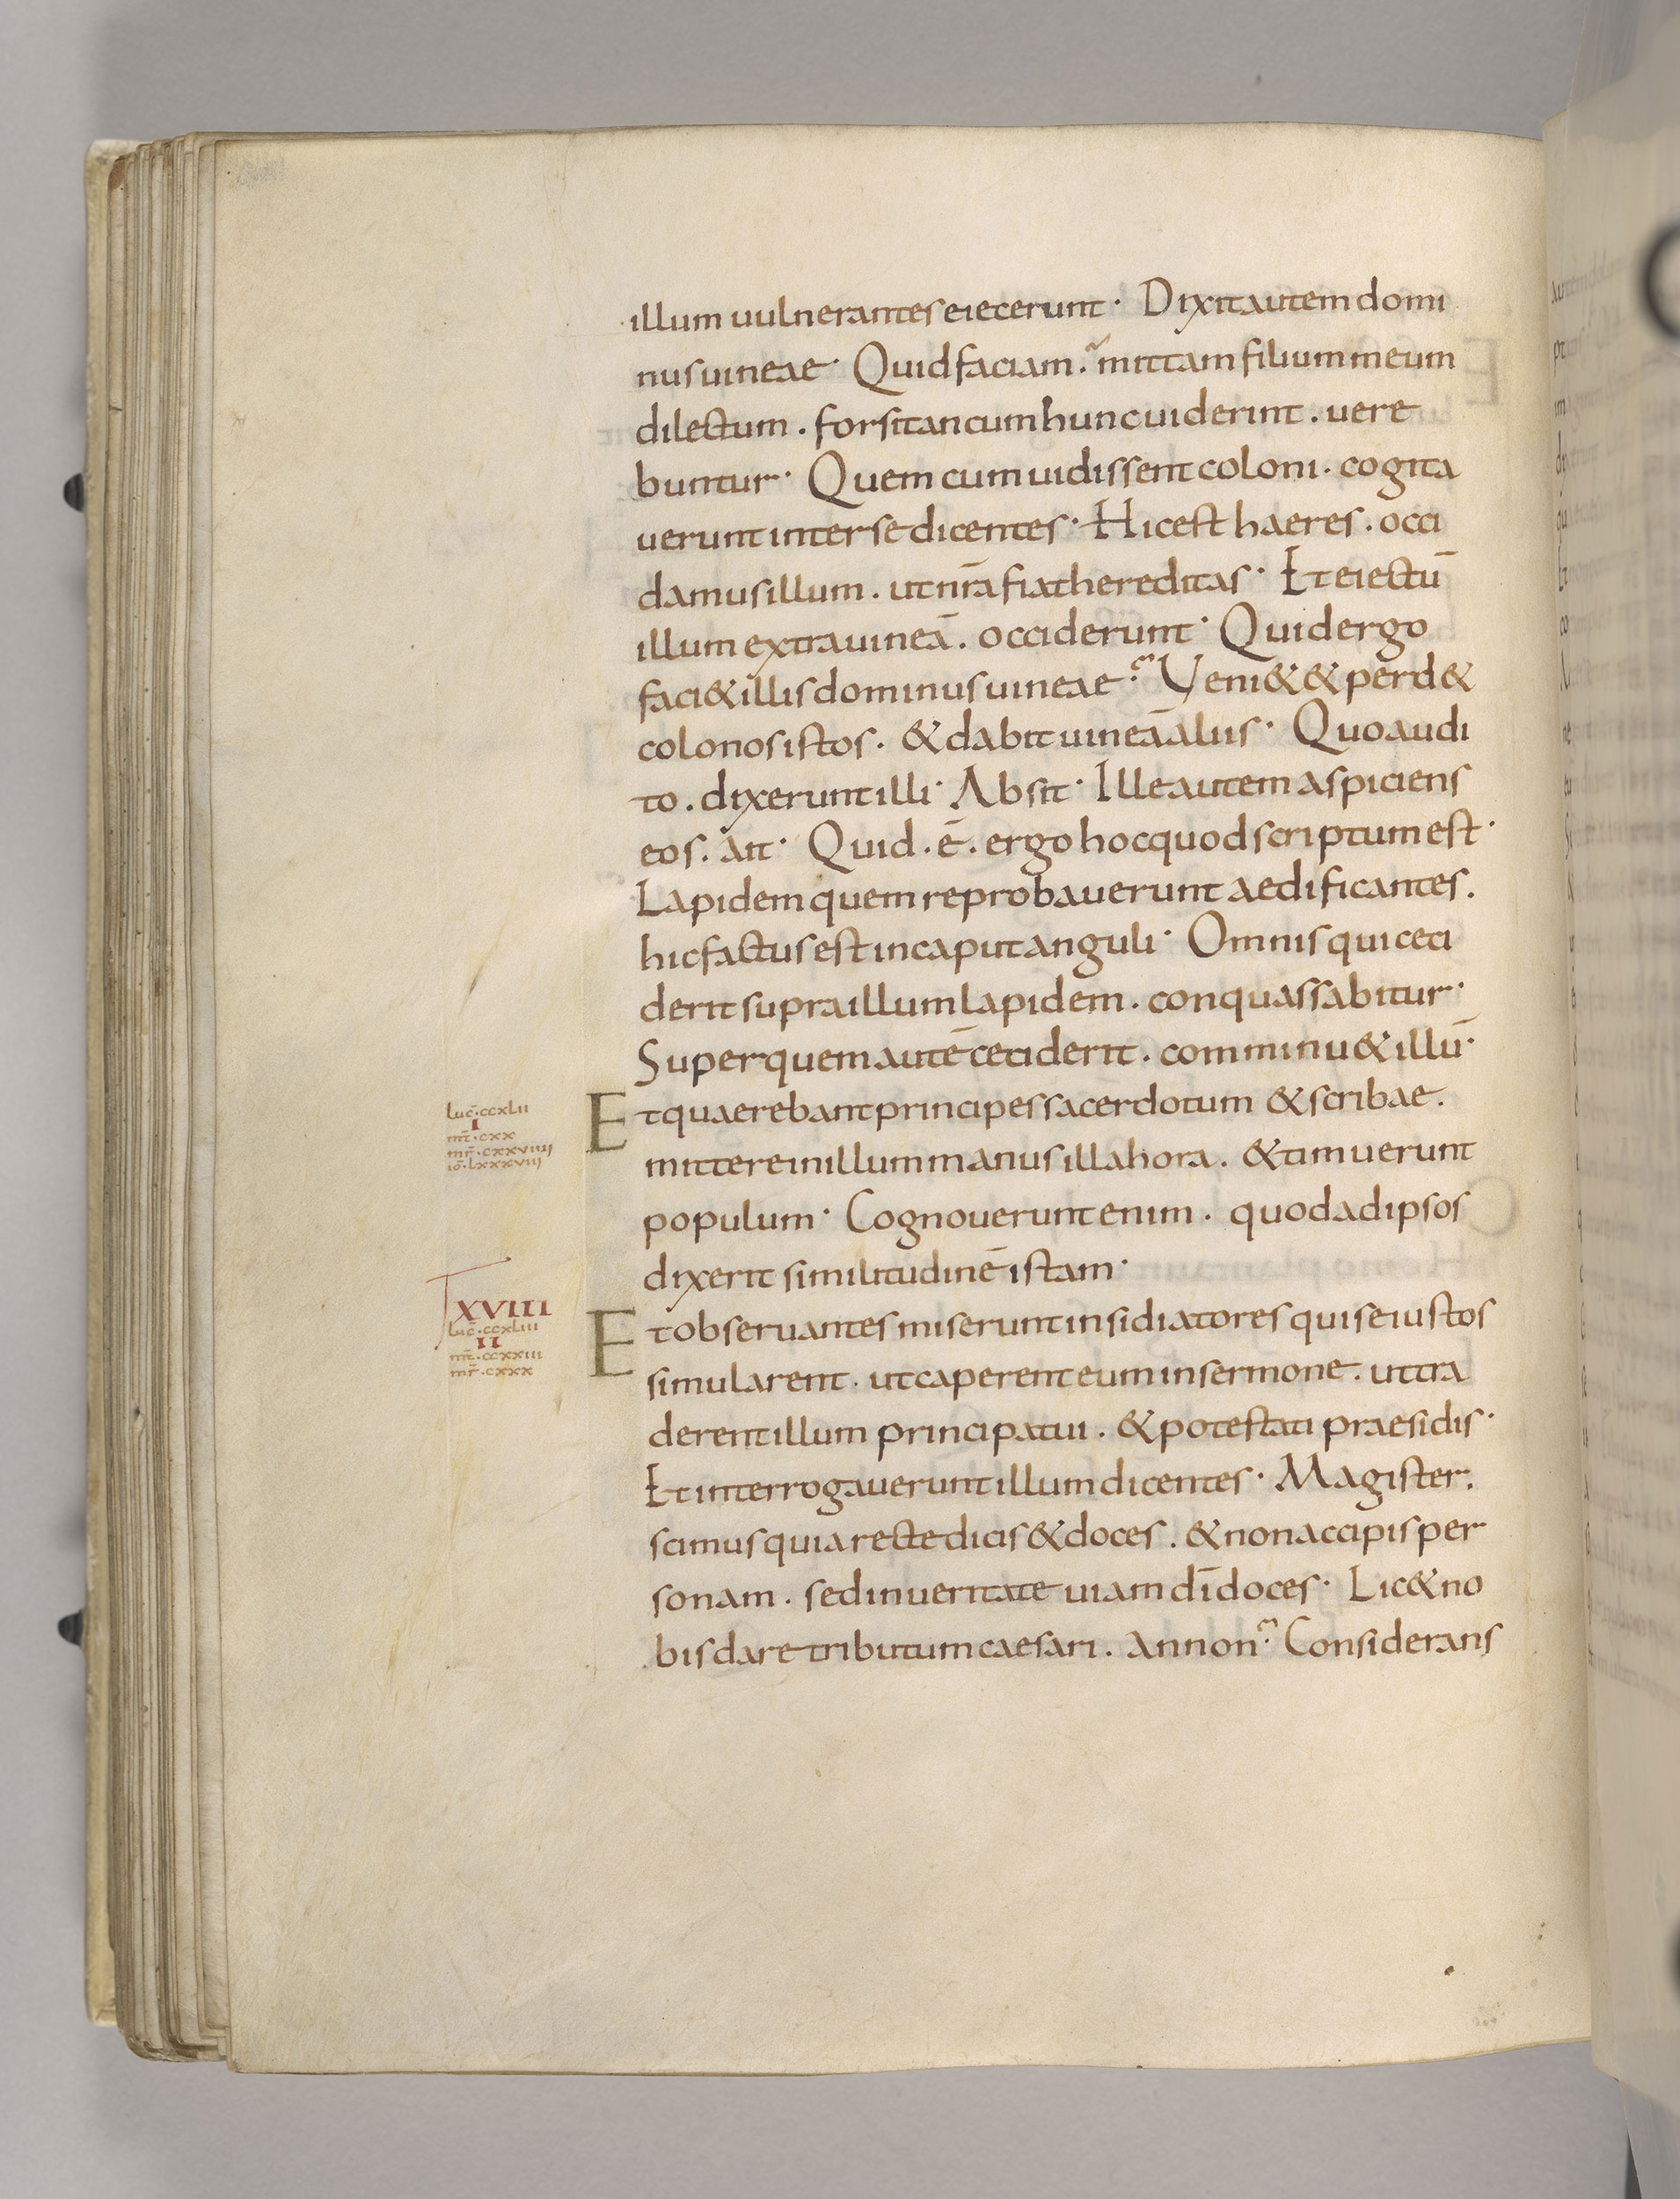 illum uulnerantes eiecerunt· Dixit autem domi
nus uineae· Quid faciam? mittam filium meum
dilectum. forsitan cum hunc uiderint. uere
buntur· Quem cum uidissent coloni· cogita
uerunt inter se dicentes· Hic est haeres. occi
damus illum. ut nr̄a fiat hereditas· Et eiectū
illum extra uineā. occiderunt· Quid ergo
faci& illis dominus uineae? Veni& & perd&
colonos istos· & dabit uineā aliis· Quo audi
to. dixerunt illi· Absit· Ille autem aspiciens
eos. ait· Quid .ē. ergo hoc quod scriptum est·
Lapidem quem reprobauerunt aedificantes.
hic factus est in caput anguli· Omnis qui ceci
derit supra illum lapidem. conquassabitur·
Super quem autē ceciderit. comminu& illū·
luc̄·ccxlii
I
mt̄·cxx
mr̄·cxxviiii
iō·lxxxviii
Et quaerebant principes sacerdotum & scribae.
mittere in illum manus illa hora. & timuerunt
populum· Cognouerunt enim. quod ad ipsos
dixerit similitudinē istam·
XVIII
luc̄·ccxliii
II
mt̄·ccxxiii
mr̄·cxxx
Et obseruantes miserunt insidiatores qui se iustos
simularent. ut caperent eum in sermone. ut tra
derent illum principatui. & potestati praesidis·
Et interrogauerunt illum dicentes· Magister.
scimus quia recte dicis & doces. & non accipis per
sonam. sed in ueritate uiam dī doces· Lic& no
bis dare tributum caesari. an non? Considerans